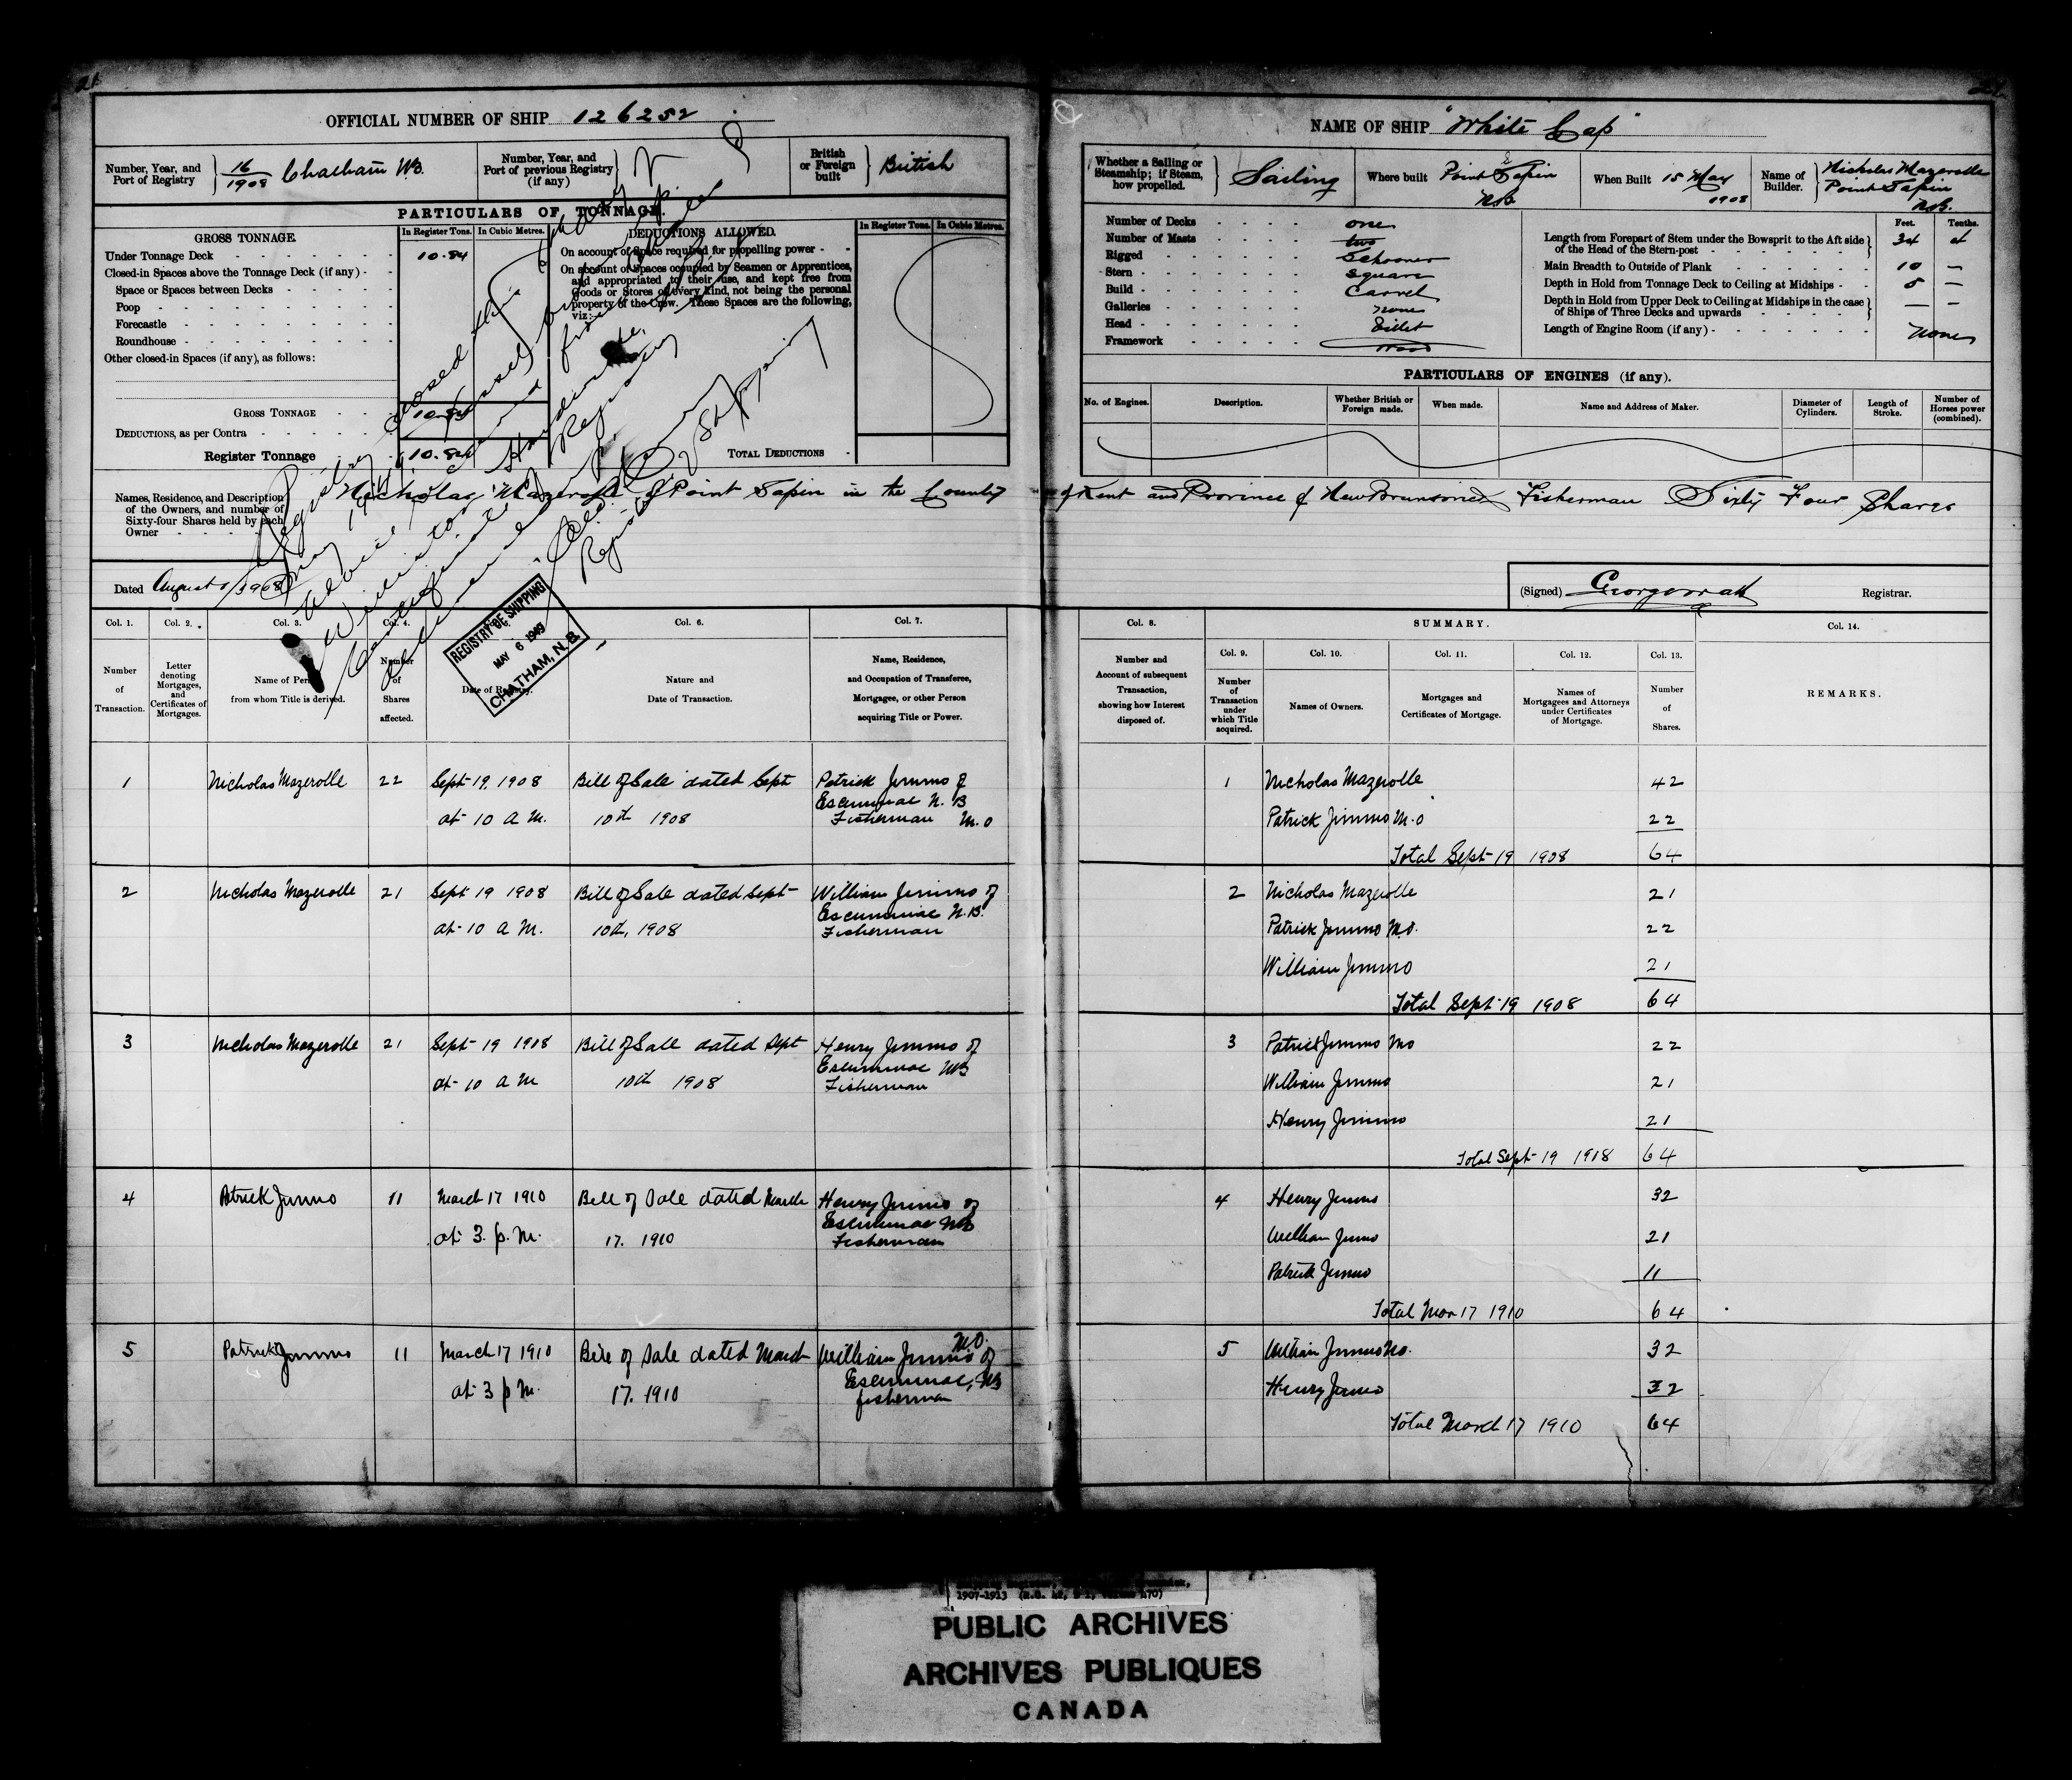 OFFICIAL NUMBER OF SHIP 126252
Number, Year, and Port of Registry } 16/1908 Chatham NB.
Number, Year, and Port of previous Registry (if any) }
British or Foreign built } British
PARTICULARS OF TONNAGE.
GROSS TONNAGE. In Register Tons. In Cubic Metres. DEDUCTIONS ALLOWED. In Register Tons. In Cubic Metres.
Under Tonnage Deck 10.84
Closed-in Spaces above the Tonnage Deck (if any)
Space or Spaces between Decks
Poop
Forecastle
Roundhouse
Other closed-in Spaces (if any), as follows:
On account of Space required for propelling power
On account of Spaces occupied by Seamen or Apprentices,
and appropriated to their use, and kept free from
Goods or Stores of every kind, not being the personal
property of the Crew. These Spaces are the following,
viz:
GROSS TONNAGE 10.84
DEDUCTIONS, as per Contra
Register Tonnage 10.84 TOTAL DEDUCTIONS
Registry closed this
Registrar of Shipping
NAME OF SHIP "White Cap"
Whether a Sailing or Steamship; if Steam, how propelled. } Sailing
Where built Point Sapin NB
When Built 15 May 1908
Name of Builder. } Nicholas Mazerolle Point Sapin NB.
Number of Decks one
Number of Masts two
Rigged Schooner
Stern Square
Build Carvel
Galleries none
Head Billet
Framework Wood
Feet. Tenths.
Length from Forepart of Stem under the Bowsprit to the Aft side of the Head of the Stern-post 34
Main Breadth to Outside of Plank 10 —
Depth in Hold from Tonnage Deck to Ceiling at Midships 5 —
Depth in Hold from Upper Deck to Ceiling at Midships in the case of Ships of Three Decks and upwards — —
Length of Engine Room (if any) none
PARTICULARS OF ENGINES (if any).
No. of Engines. Description. Whether British or Foreign made. When made. Name and Address of Maker. Diameter of Cylinders. Length of Stroke. Number of Horses power (combined).
Names, Residence, and Description of the Owners, and number of Sixty-four Shares held by each Owner
Nicholas Mazerolle of Point Sapin in the County of Kent and Province of New Brunswick Fisherman Sixty Four Shares
Dated August 1908
(Signed) Registrar.
REGISTRY OF SHIPPING
MAY 6 1949
CHATHAM, N.B.
Col. 1. Col. 2. Col. 3. Col. 4. Col. 6. Col. 7. Col. 8. SUMMARY. Col. 14.
Col. 9. Col. 10. Col. 11. Col. 12. Col. 13.
Number of Transaction.
Letter denoting Mortgages, and Certificates of Mortgages.
Name of Person from whom Title is derived.
Number of Shares affected.
Date of Registry.
Nature and Date of Transaction.
Name, Residence, and Occupation of Transferee, Mortgagee, or other Person acquiring Title or Power.
Number and Account of subsequent Transaction, showing how Interest disposed of.
Number of Transaction under which Title acquired.
Names of Owners.
Mortgages and Certificates of Mortgage.
Names of Mortgagees and Attorneys under Certificates of Mortgage.
Number of Shares.
REMARKS.
1 Nicholas Mazerolle 22 Sept 19, 1908 Bill of Sale dated Sept Patrick Jimmo of
Escuminac N.B
at 10 A M. 10th 1908 Fisherman M.O
1 Nicholas Mazerolle 42
Patrick Jimmo M.O 22
Total Sept 19 1908 64
2 Nicholas Mazerolle 21 Sept 19 1908 Bill of Sale dated Sept William Jimmo of
Escuminac N.B.
at 10 A M. 10th, 1908 Fisherman
2 Nicholas Mazerolle 21
Patrick Jimmo M.O. 22
William Jimmo 21
Total Sept 19 1908 64
3 Nicholas Mazerolle 21 Sept 19 1908 Bill of Sale dated Sept Henry Jimmo of
Escuminac NB
at 10 A M 10th 1908 Fisherman
3 Patrick Jimmo MO 22
William Jimmo 21
Henry Jimmo 21
Total Sept 19 1908 64
4 Patrick Jimmo 11 March 17 1910 Bill of Sale dated March Henry Jimmo of
Escuminac NB
at 3. p.m. 17. 1910 Fisherman
4 Henry Jimmo 32
William Jimmo 21
Patrick Jimmo 11
Total Mar 17 1910 64
5 Patrick Jimmo 11 March 17 1910 Bill of Sale dated March William Jimmo M.O. of
Escuminac, NB
at 3 p m. 17. 1910 fisherman
5 William Jimmo MO. 32
Henry Jimmo 32
Total March 17 1910 64
PUBLIC ARCHIVES
ARCHIVES PUBLIQUES
CANADA